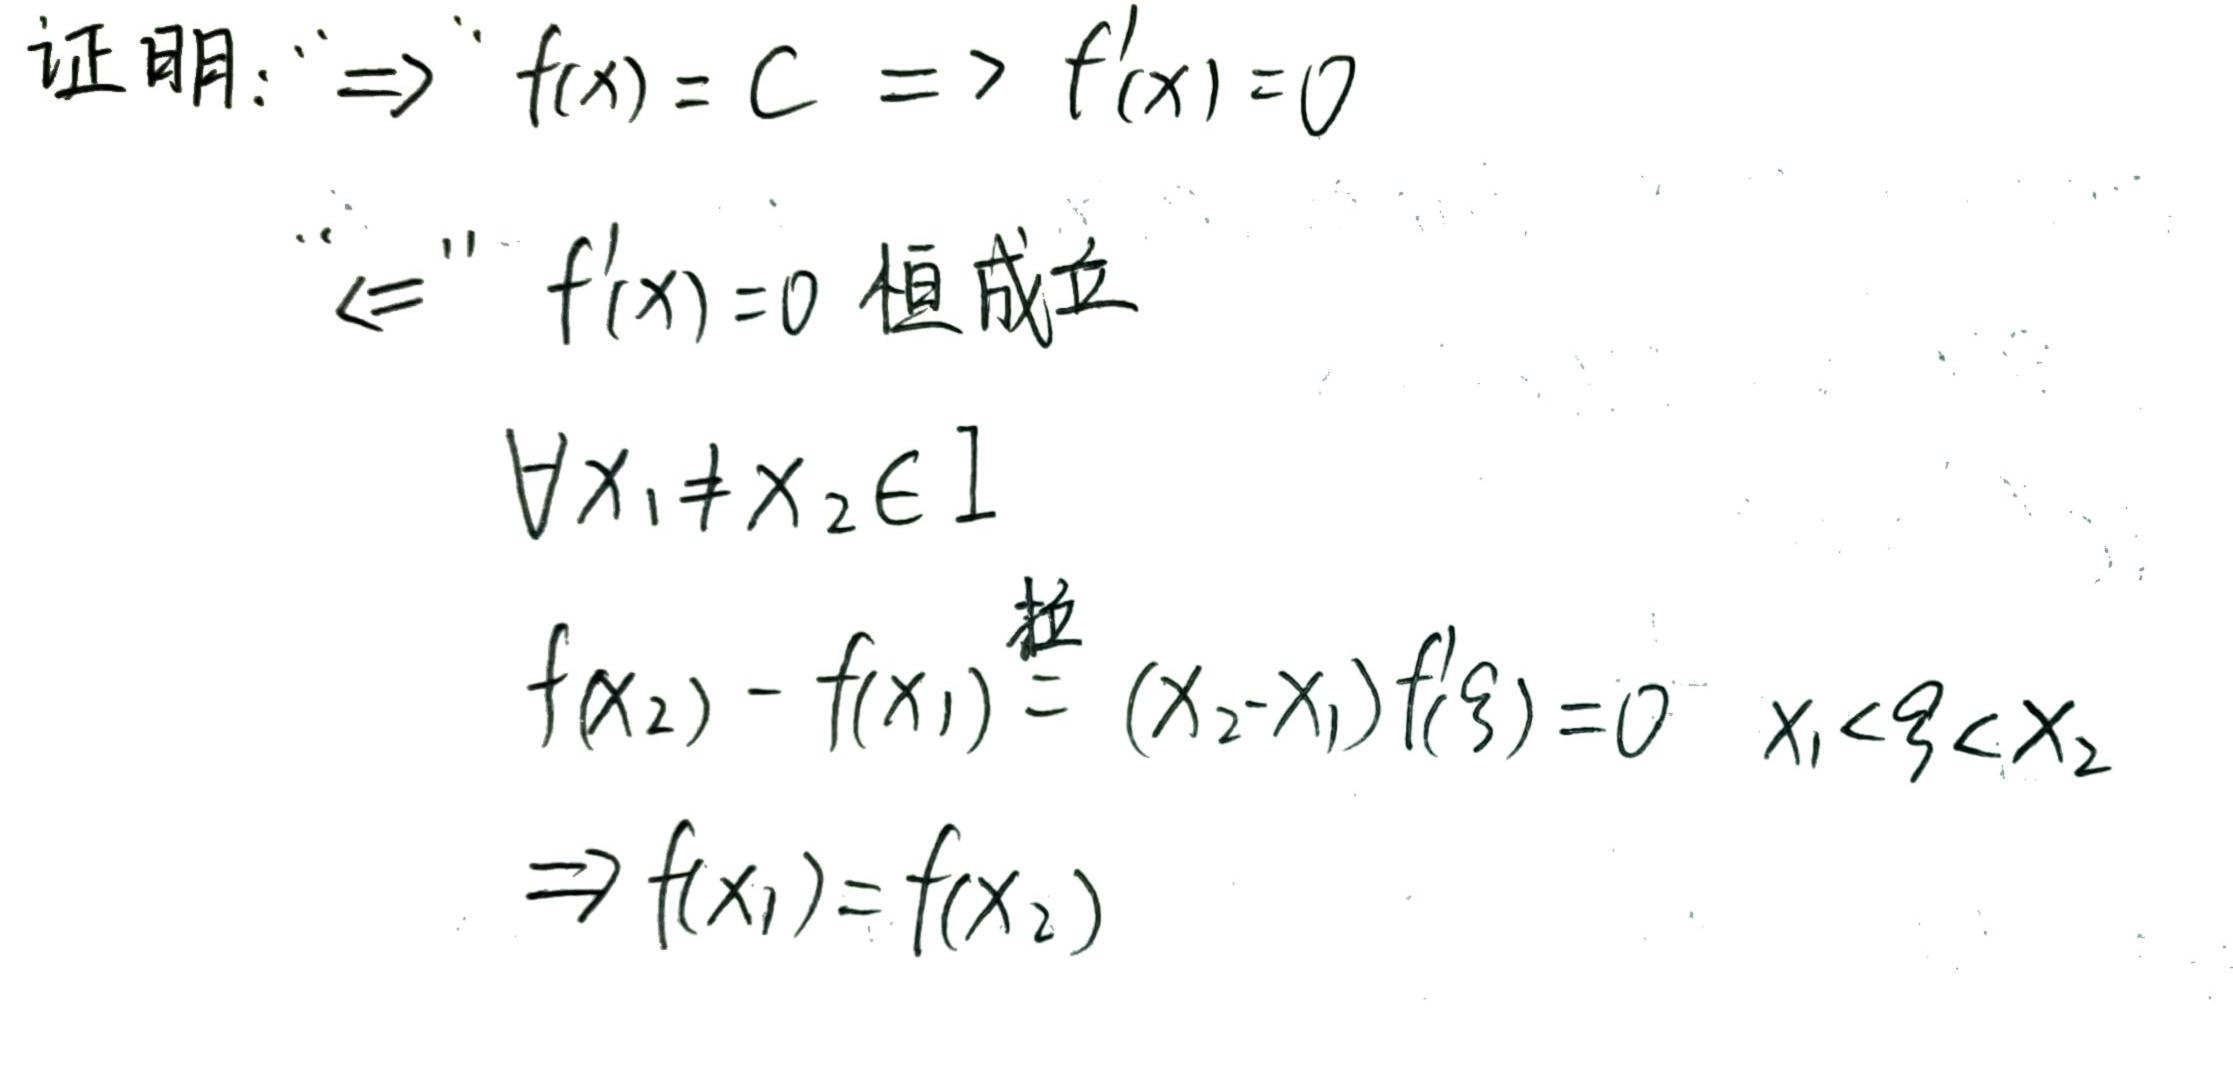 证明:“⇒” f(x) = C => f'(x) = 0
“<=” f'(x) = 0 恒成立
∀x₁≠x₂∈I
f(x₂) - f(x₁) 拉= (x₂-x₁)f'(ξ) = 0 x₁<ξ<x₂
⇒ f(x₁) = f(x₂)